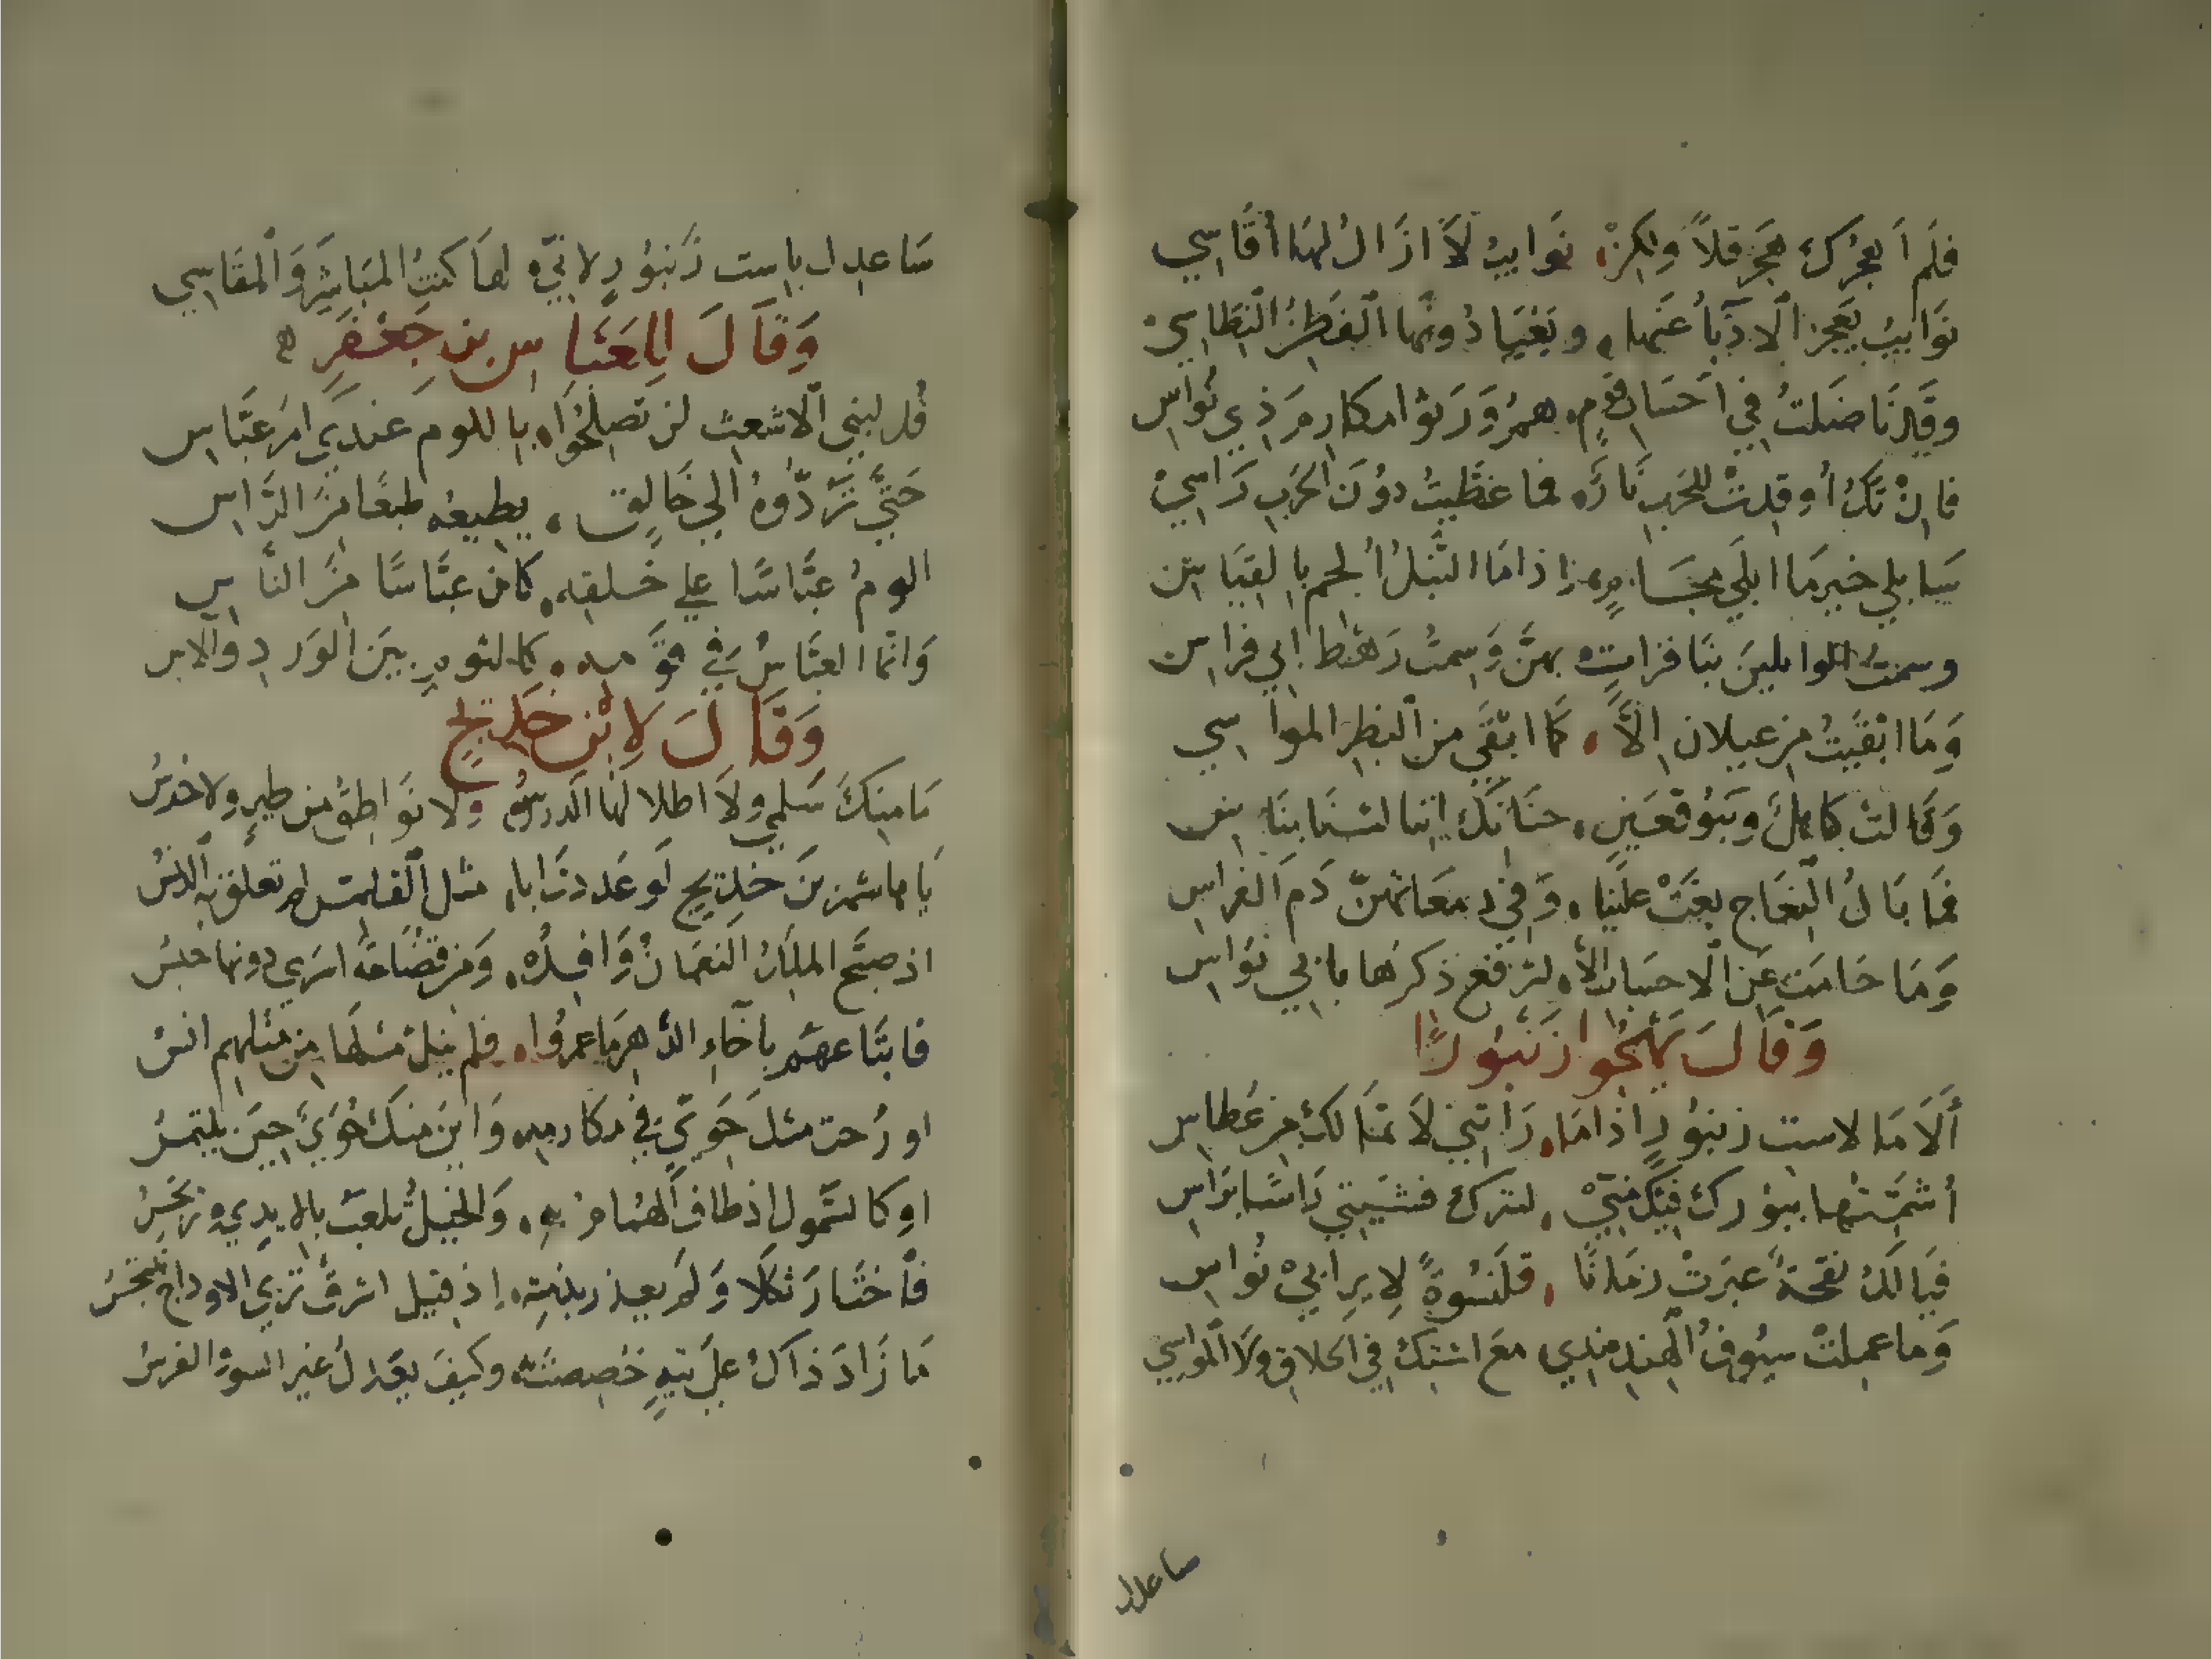 فلم اَهجُرك هَجر قِلاً ولكن نَوايبُ لاَ ازَالُ لهَا أقَاسِي
نَوايبُ يَعجز الاُدَبآءُ عَنها وَيَعْيَا دُونَها الفَطِنُ النِطَاسِيْ
وقَد نَاضَلتُ في احسَاب قومٍ همُ وَرثوا مكارم ذِي نُواسِ
فان تَكُ أوقدتْ للحرب نَارٌ فما غَطَّيتُ دُونَ الحَربِ رَاسِيْ
سَابلي خير مَا ابلَي مُحَامٍ إذا مَا النَّبلُ ألجم بالقيَاسِ
وسمتُ الوايلينَ بنَاقراتٍ بهنَّ وَسمتُ رَهْطَ ابي فراسِ
وَمَا ابْقَيتُ من عيلان الاَّ كَما ابْقَي من البَظر المواسي
وَقَالت كاهلٌ وَبَنُو قعَينٍ حنَانَك إننا لسْنَا بنَاسِ
فمَا بَالُ النِّعَاج بغَتْ علَينا وَفي دمعَاتهنَّ دَم الغراسِ
وَمَا حَامَت عَن الاحسَاب الاَّ لترفع ذكرهَا بابي نواسِ
وَقَالَ يَهْجُوا زَنبُورًا
ألاَ مَا لاست زنبُورٍ اذا مَا رَأتني لاَ تمَالكُ من عُطاسِ
أشَمَّتْها ببُوركَ فيك منّيْ لتترك فشيتي رَاسًا برَاسِ
فيَا لكَ نفحةً عبَرَتْ زمَانًا قلَنسُوةً لايرِ ابيْ نُواسِ
وَما عملتْ سيُوفُ الهند عندي مع استك في الحلاق ولاَ المواسي
ساعدل
سَاعدل باست زَنبُورٍ لانّي لهَا كنتُ المبَاشِرَ وَالمقَاسِي
وَقَالَ للعَبَّاسِ بن جَعْفَرٍ
قُل لبني الاشعث لن تصلحُوا باللوم عندي امرَ عبَّاسِ
حَتَّي تَرُدُّوهُ الي خَالِقٍ يطبعه طبعًا منَ الرَّاسِ
الومُ عبَّاسًا علي خَلقه كانَ عبَّاسًا منَ النَّاسِ
وَانّما العبَّاسُ في قَومه كالثومِ بينَ الوَردِ والاسِ
وَقَالَ لاِبْنِ خَدِيجٍ
مَا منكَ سَلمي ولاَ اطلالهَا الدرسُ وَلا نَواطقُ من طيرٍ ولاَ خرسُ
يَا هاشم بنَ خديجٍ لَو عَددتَ ابا مثل القلمس لم تعلق به الدَنسُ
اذ صبَّح الملكَ النعمانَ وَافدُهُ وَمن قضَاعَة اسرَي دونها حبسُ
فابتَاعهم باخآءِ الدَّهر مَا عمرُوا فلم ينلْ مثلهَا من مثلهم انسُ
او رُحت مثلَ حَوَيٍّ في مكارمِه وَاينَ منك حُوَيٌّ حِينَ يلتمسُ
او كالسَّمولِ اذ طاف الهُمامُ بهِ وَالخيلُ تلعبُ بالايدي وَترتَجسُ
فاختَار ثكلا وَلم يغدر بذمتِه إذ قيل اشرف تري الاوداج تنبجسُ
مَا زَادَ ذاكَ علَي تيهٍ خُصصتَ به وكيفَ يعَدلُ غير السورُ الفرسُ